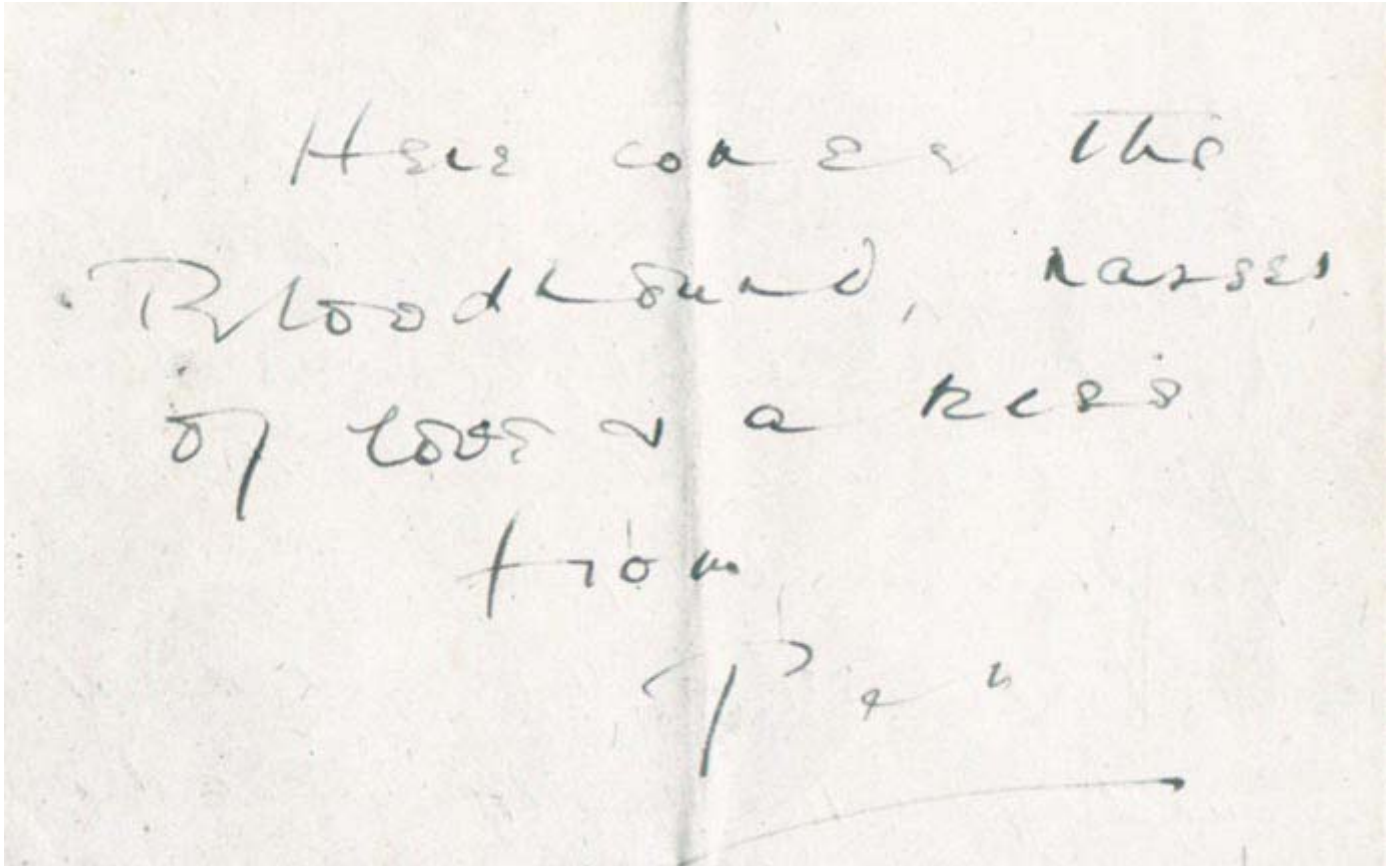 Here comes the
Bloodhound, masses
of love & a kiss
from
Pen